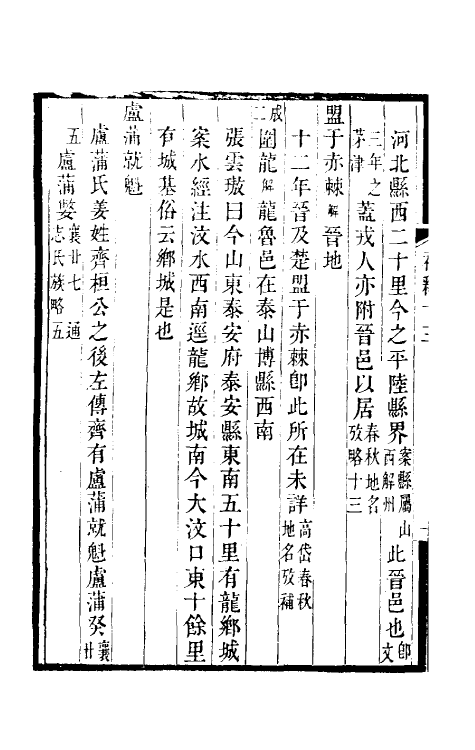 河北縣西二十里今之平陸縣界案縣屬山西解州此晉邑也卽文
三年之茅津蓋戎人亦附晉邑以居春秋地名攷略十三
盟于赤棘解晉地
十二年晉及楚盟于赤棘卽此所在未詳高岱春秋地名攷補
成二圍龍解龍魯邑在泰山博縣西南
張雲璈曰今山東泰安府泰安縣東南五十里有龍鄉城
案水經注汶水西南逕龍鄉故城南今大汶口東十餘里
有城基俗云鄉城是也
盧蒲就魁
盧蒲氏姜姓齊桓公之後左傳齊有盧蒲就魁盧蒲癸襄廿
五盧蒲嫳襄廿七通志氏族略五